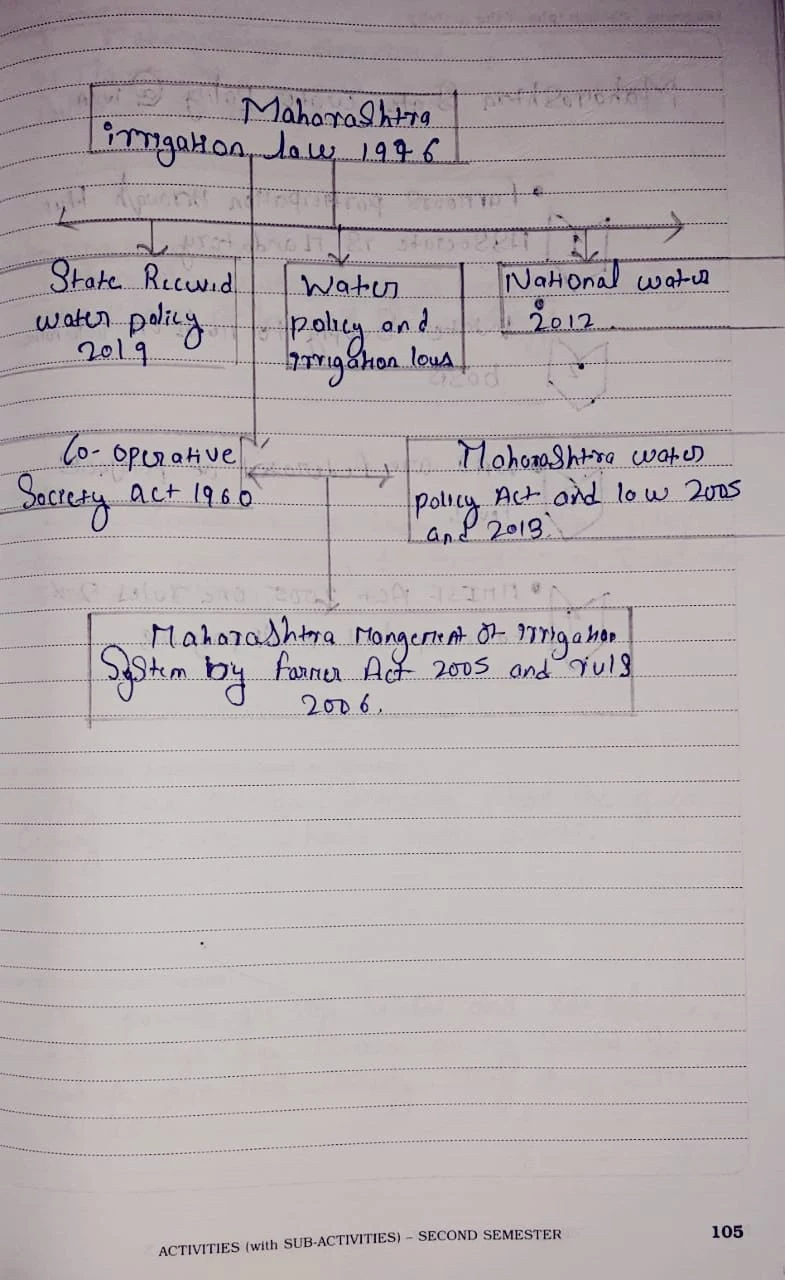 Maharashtra
irrigation law 1976
State Recured
water policy
2019
Water
policy and
irrigation lows
National water
2012
Co-operative
Society act 1960
Maharashtra water
policy Act and law 2005
and 2013
Maharashtra Mangement Of irrigation
System by farmer Act 2005 and ruls
2006.
ACTIVITIES (with SUB-ACTIVITIES) – SECOND SEMESTER
105